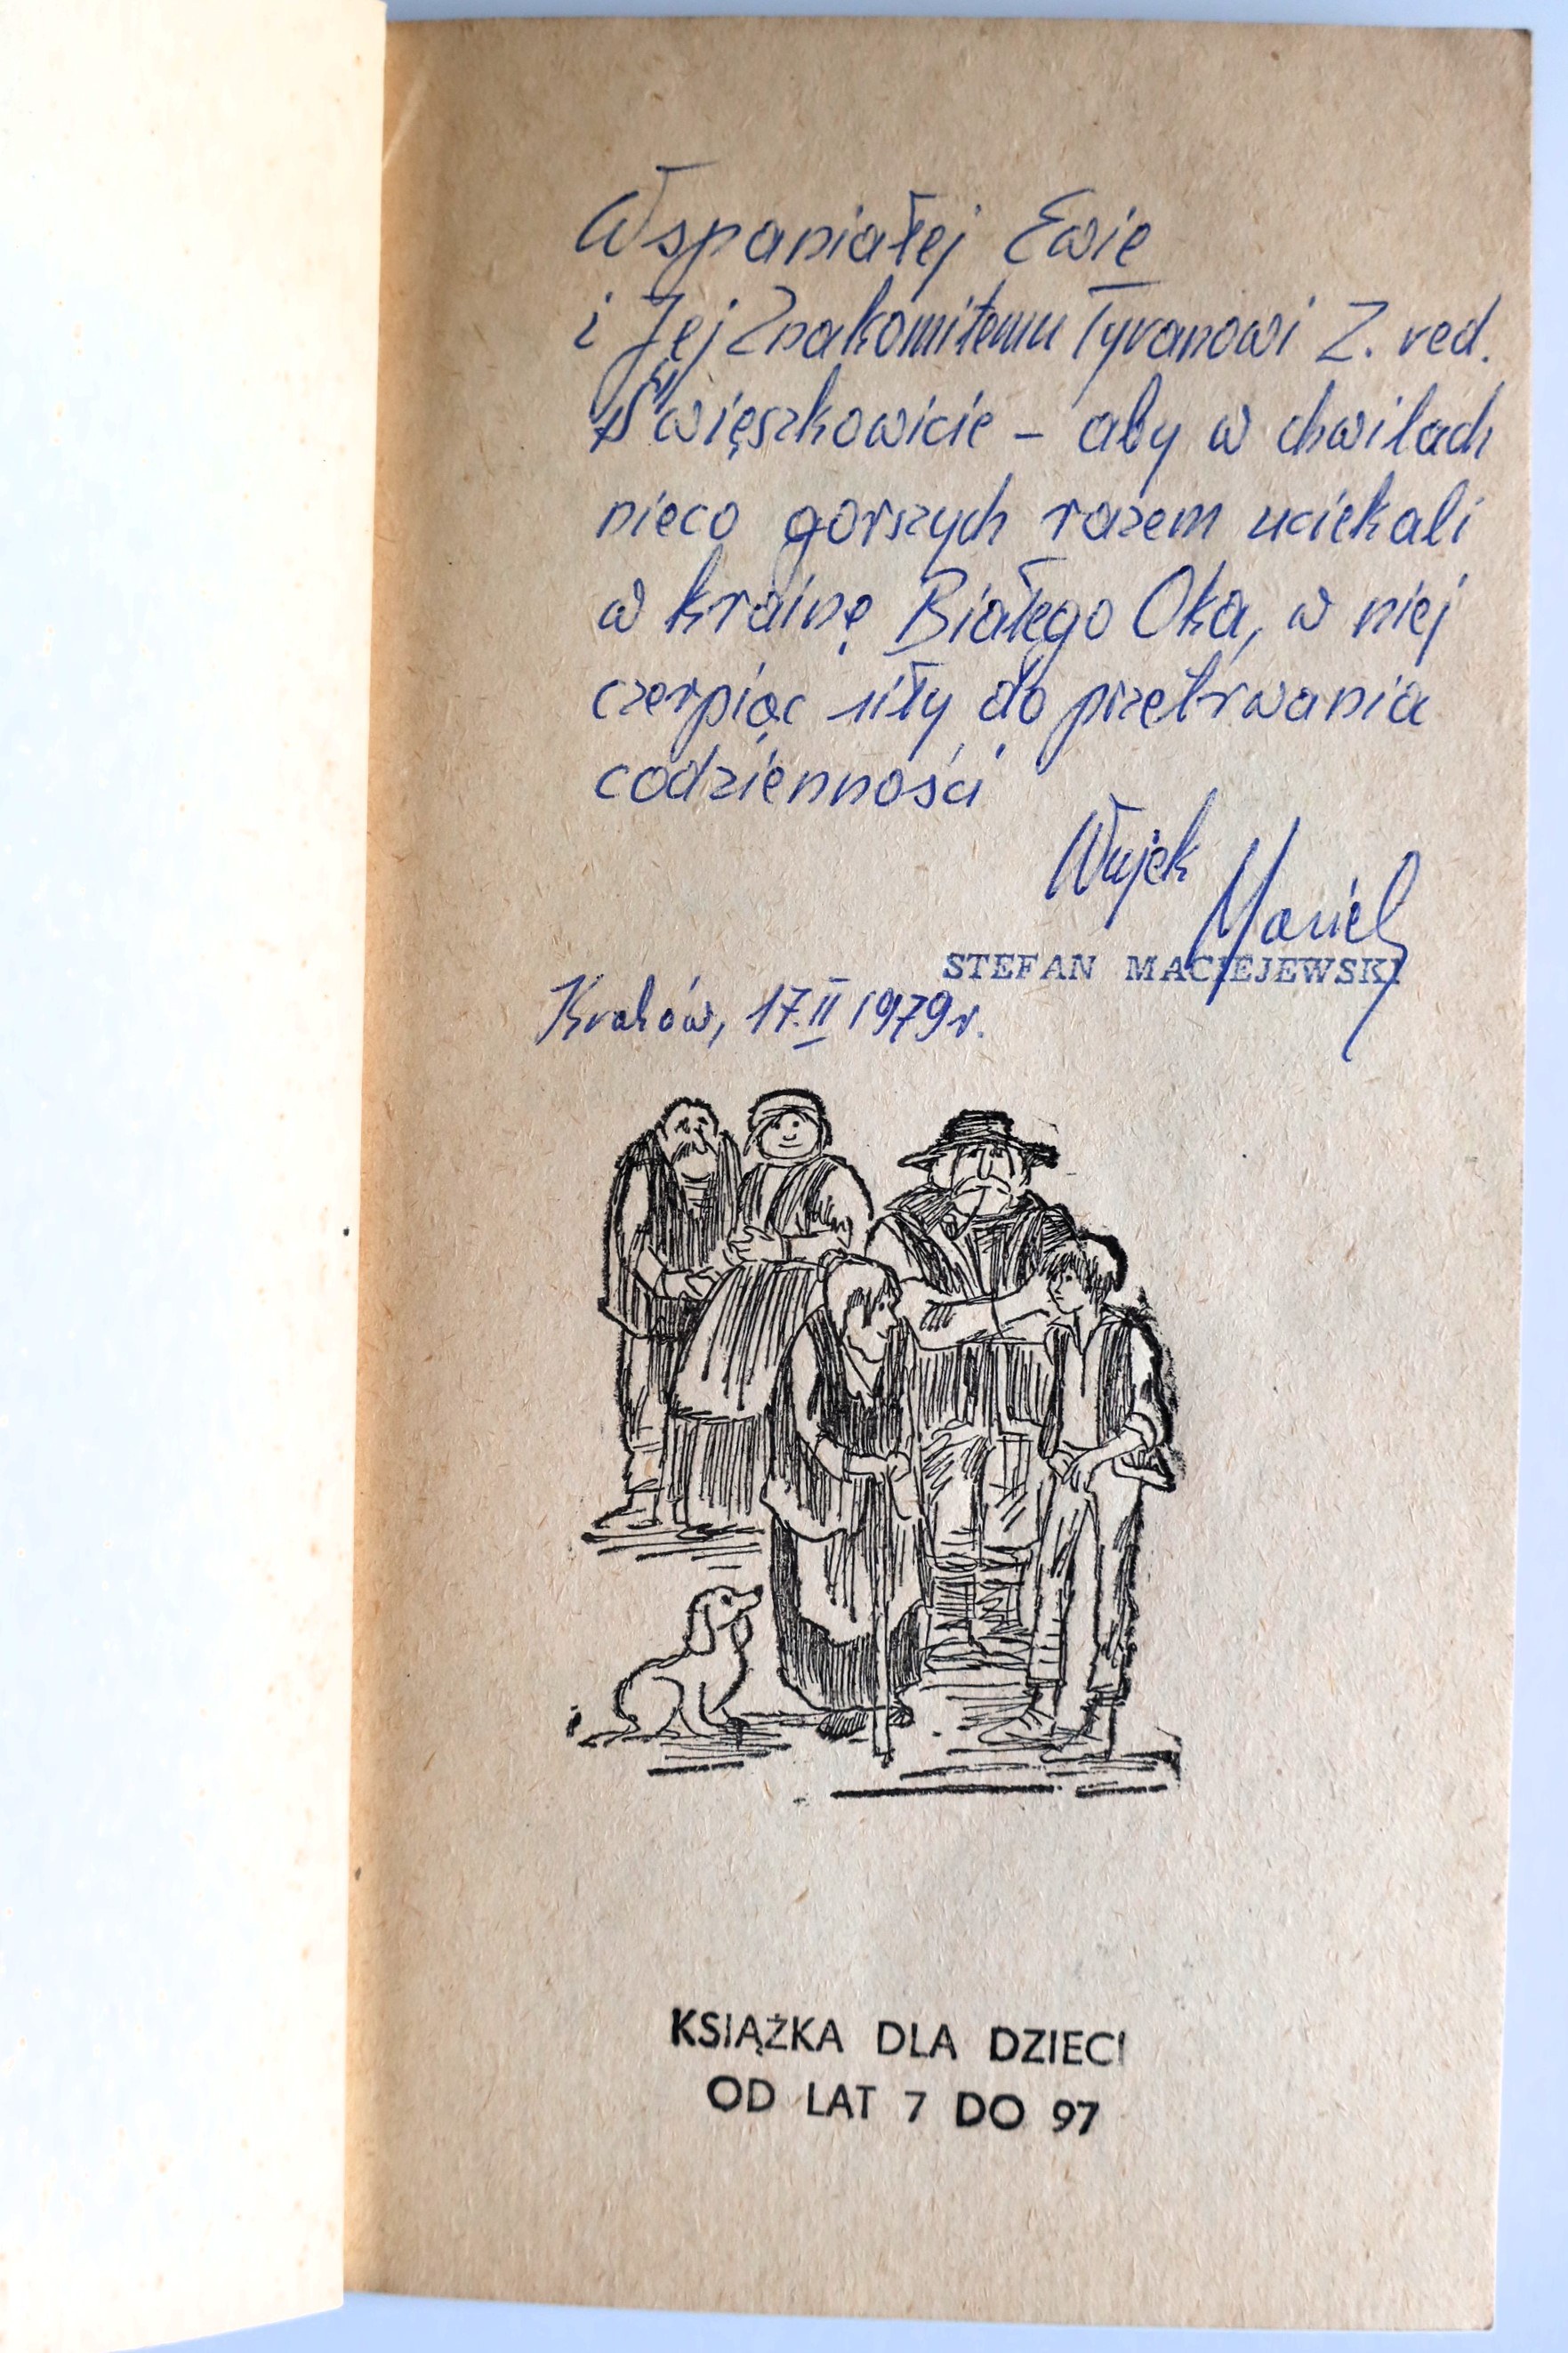 Wspaniałej Ewie
i Jej Znakomitemu Tyranowi Z. red.
Święszkowicie – aby w chwilach
nieco gorszych razem uciekali
w krainę Białego Oka, w niej
czerpiąc siły do przetrwania
codzienności
Wujek
STEFAN MACIEJEWSKI
Kraków, 17.II 1979 r.
KSIĄŻKA DLA DZIECI
OD LAT 7 DO 97